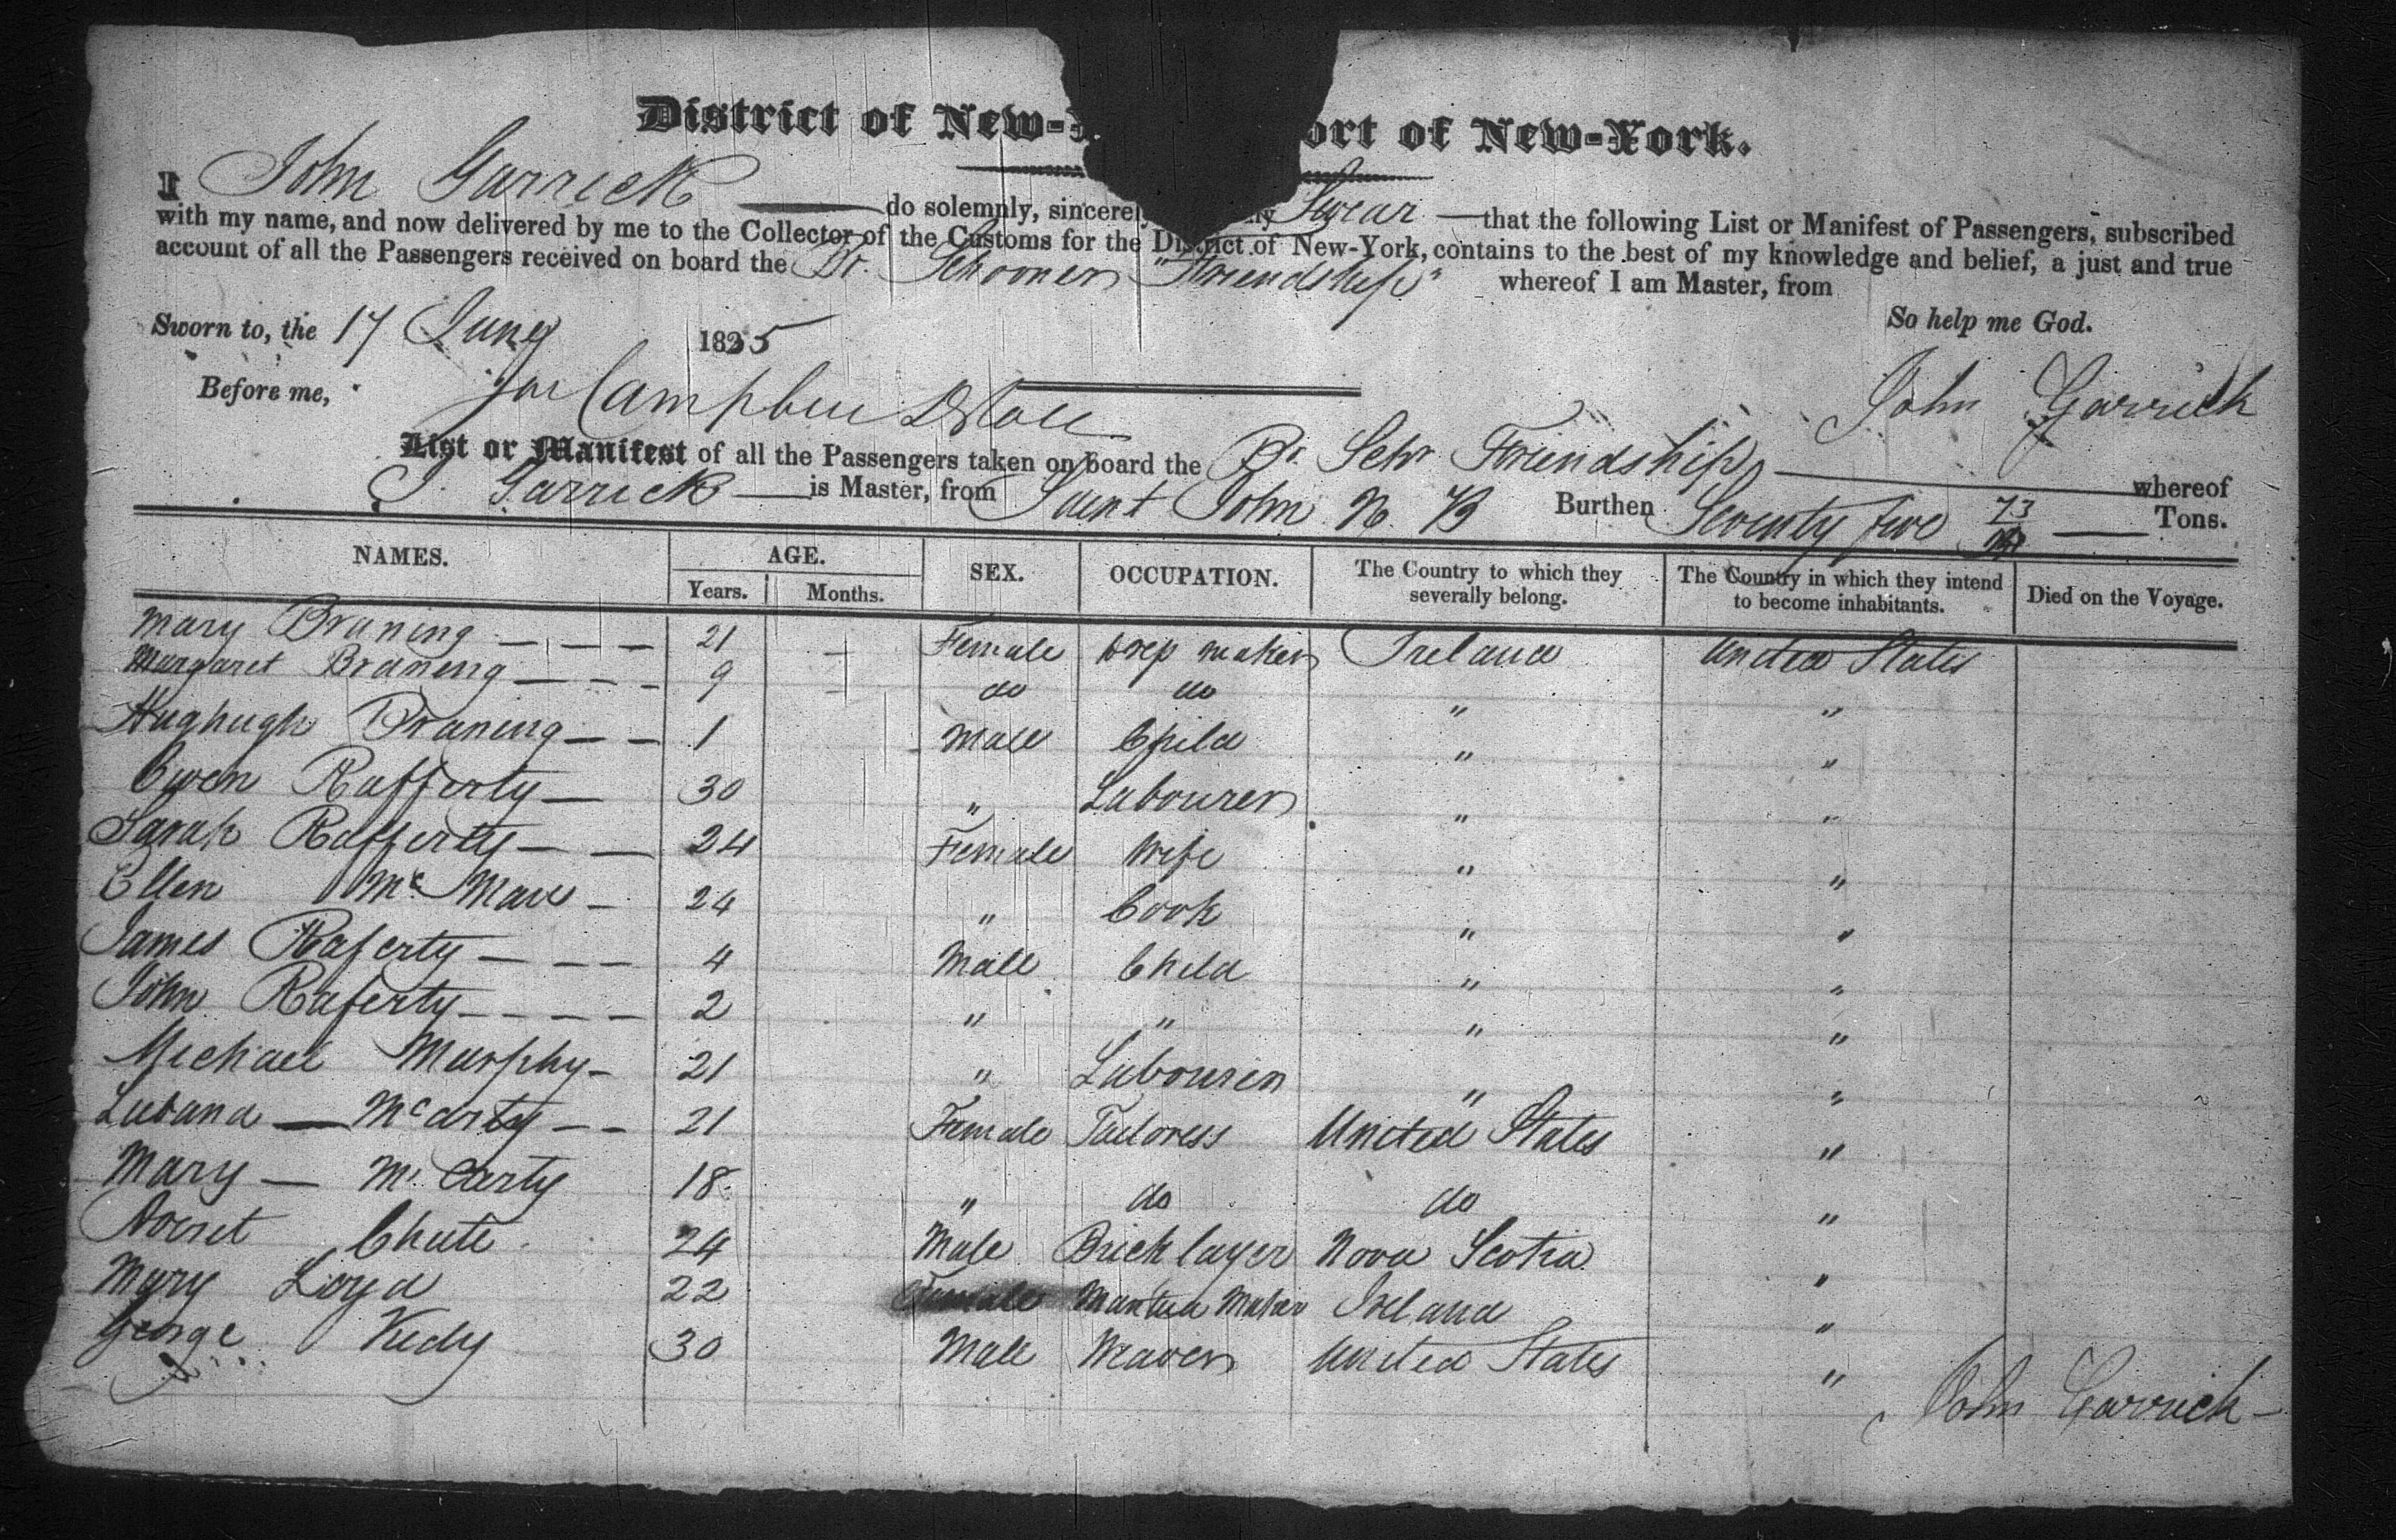 District of New- ort of New-York.
I John Garrick do solemnly, sincerely Swear that the following List or Manifest of Passengers, subscribed
with my name, and now delivered by me to the Collector of the Customs for the District of New-York, contains to the best of my knowledge and belief, a just and true
account of all the Passengers received on board the Br. Schooner "Friendship" whereof I am Master, from
So help me God.
Sworn to, the 17 June 1835
John Garrick
Before me,
List or Manifest of all the Passengers taken on board the Br Schr Friendship whereof
J. Garrick is Master, from Saint John N. B Burthen Seventy five 73 Tons.
NAMES. AGE. SEX. OCCUPATION. The Country to which they severally belong. The Country in which they intend to become inhabitants. Died on the Voyage.
Years. Months.
Mary Braning 21 Female Drep maker Ireland United States
Margaret Braning 9 do do " "
Hughugh Braning 1 Male Child " "
Owen Rafferty 30 " Labourer " "
Sarah Rafferty 24 Female Wife " "
Ellen Mc 24 " Cook " "
James Raferty 4 Male Child " "
John Raferty 2 " " " "
Michael Murphy 21 " Labourer " "
Mcarty 21 Female Tailoress United States "
Mary Mc Carty 18 " do do "
Chute 24 Male Brick layer Nova Scotia "
Mary Loyd 22 Female Mantua Maker Ireland "
George Kedy 30 Male Weaver United States "
John Garrick